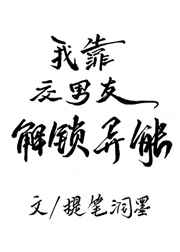 我靠
交男友
解锁异能
文/提笔洞墨